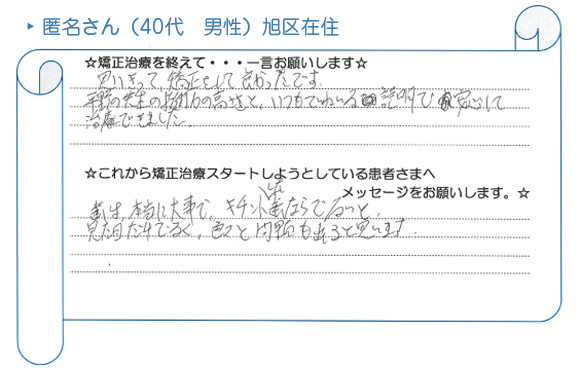 ▶ 匿名さん（40代　男性）旭区在住
☆矯正治療を終えて・・・一言お願いします☆
思いきって、矯正をして良かったです。
平野先生の技術力の高さと、いつもていねいな説明で安心して
治療できました。
☆これから矯正治療スタートしようとしている患者さまへ
メッセージをお願いします。☆
歯は、本当に大事で、キチンと歯ならびでないと、
見た目だけでなく、色々と問題も出ると思います。